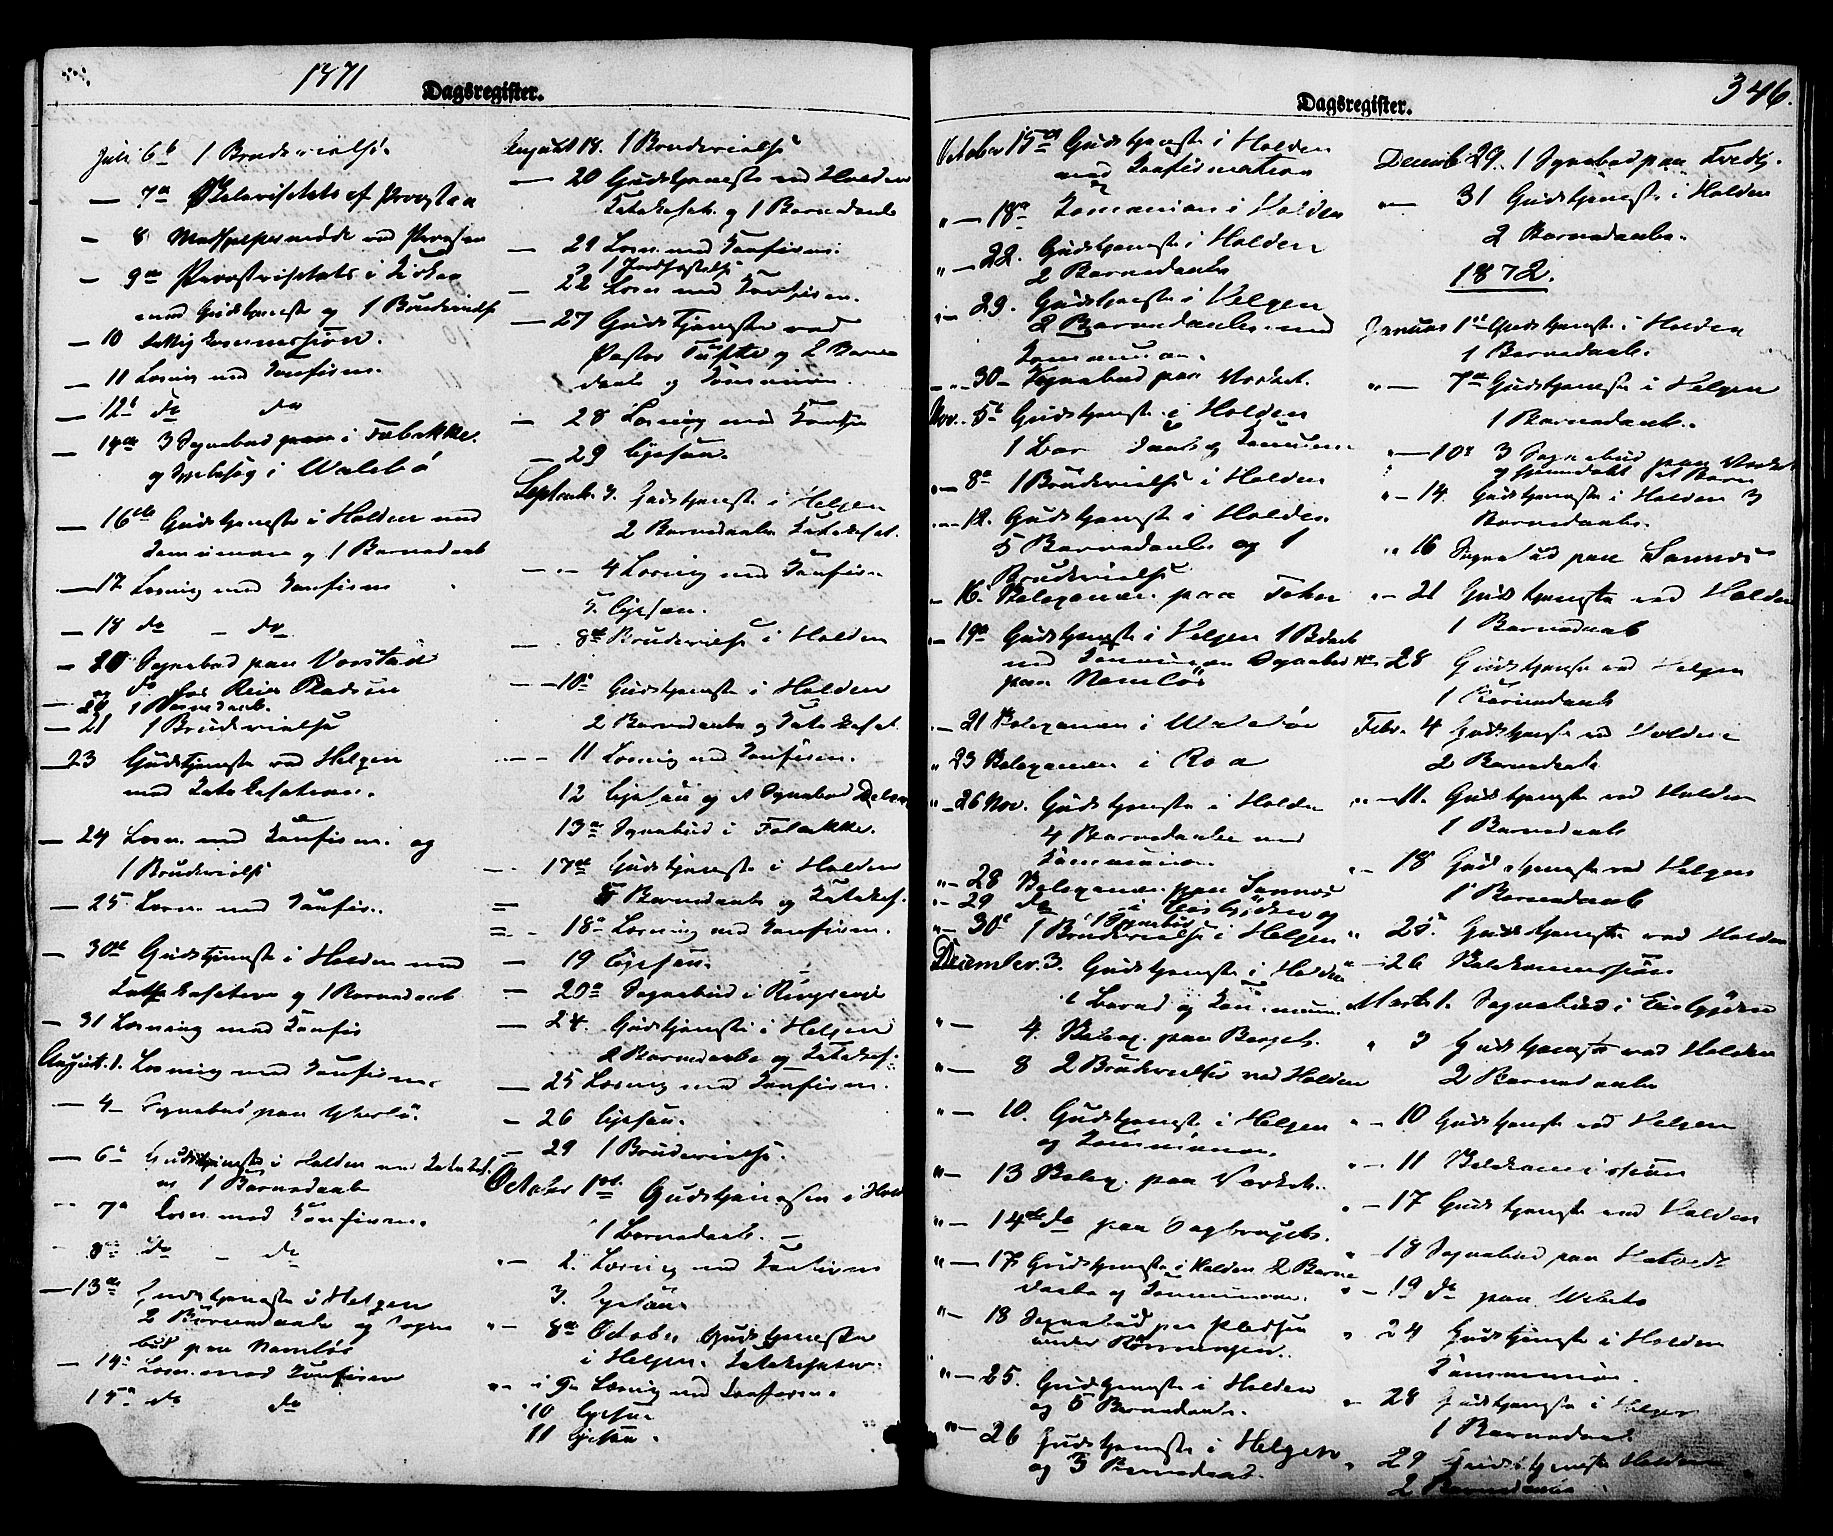 1871
Dagsregister.
Juli 6te 1 Brudevielse.
— 7de Skolevisitats af Provsten
— 8 Medhjelpermøde ved Provsten
— 9de Provstevisitats i Kirken
med Gudstjeneste og 1 Brudevielse
— 10 Fattigkommission.
— 11 Læsning med Konfirm.
— 12te do do
— 14de 3 Sognebud i
og i
— 16de Gudstjeneste i Holden med
Communion og 1 Barnedaab
— 17 Læsning med Konfirm
— 18 do - do
— 20 Sognebud paa
do hos
1 Barnedaab.
— 21 1 Brudevielse
— 23 Gudstjeneste ved Helgen
med Katekisation.
— 24 Læsn. med Konfirm. og
1 Brudevielse
— 25 Læsn. med Konfirm.
— 30te Gudstjeneste i Holden med
Katekisation og 1 Barnedaab
— 31 Læsning med Konfir
August 1. Læsning med Konfirm.
— 4 Sognebud paa
— 6te Gudstjeneste i Holden med Katekis.
1 Barnedaab
— 7de Læsn. med Konfirm.
— 8de do - do
— 13de Gudstjeneste i Helgen
2 Barnedaabe og Sogne
bud paa Namløs
— 14de Læsn. med Konfirm
15de do do
August 18. 1 Brudevielse
— 20 Gudstjeneste ved Holden
Katekisat. og 1 Barnedaab
— 21 Læsn. med Konfirm.
1 Jordfæstelse
— 22 Læsn med Konfirm.
— 27 Gudstjeneste ved
Pastor Tufte og 2 Barne
daabe og Kommunion.
— 28 Læsning med Konfir
— 29 ligesaa.
Septemb. 3. Gudstjeneste i Helgen
2 Barnedaabe Katekisat.
— 4 Læsning med Konfirm
5. ligesaa.
— 8de Brudevielse i Holden
— 10de Gudstjeneste i Holden
2 Barnedaabe og Katekisat.
11 Læsning med Konfirm.
12 ligesaa og et Sognebud
13de Sognebud i
— 17de Gudstjeneste i Holden
5 Barnedaabe og Katekis.
— 18de Læsning med Konfirm.
— 19 ligesaa.
— 20de Sognebud i
— 24. Gudstjeneste i Helgen
2 Barnedaabe og Katekis.
— 25 Læsning med Konfirm.
— 26 ligesaa.
— 29 1 Brudevielse.
October 1ste Gudstjenesten i Hold
1 Barnedaab. —
— 2. Læsning med Konfirm
3. ligesaa
— 8de October Gudstjeneste
i Helgen. Katekisation.
9de Læsning med Konfirm.
10 ligesaa
11 ligesaa.
346.
Dagsregister.
October 15de Gudstjeneste i Holden
med Konfirmation
— 18de Kommunion i Holden
— 22. Gudstjeneste i Holden
2 Barnedaabe
— 29. Gudstjeneste i Helgen
2 Barnedaabe med
Kommunion.
— 30 Sognebud paa Verket.
Nov. 5te Gudstjeneste i Holden
1 Bar daab og Komun.
— 8de 1 Brudevielse i Holden
— 12. Gudstjeneste i Holden
5 Barnedaabe og 1
Brudevielse
— 16. Skolexamen paa
— 19de Gudstjeneste i Helgen 1 Bdaab
med Kommunion Sognebud
paa Namløs
— 21 Skolexamen i
23 Skolexamen i Roa
— 26 Nov. Gudstjeneste i Holden
4 Barnedaabe med
Kommunion.
— 28 Skolexamen paa
— 29 do i og
1 Sognebud
— 30te 1 Brudevielse i Helgen
December 3. Gudstjeneste i Holden
1 Barned og Kommun.
— 4. Skolex. paa Berget.
— 8 2 Brudevielser ved Holden
— 10. Gudstjeneste i Helgen
og Kommunion.
— 13 Skolex. paa Verket.
— 14de do paa
— 17 Gudstjeneste i Holden 2 Barne
daabe og Kommunion.
— 18 Sognebud paa Pladsen
under Rønningen.
— 25. Gudstjeneste i Holden
og 5 Barnedaabe.
— 26 Gudstjeneste i Helgen
og 3 Barnedaab.
Decemb 29. 1 Sognebud paa
— 31 Gudstjeneste i Holden
2 Barnedaabe.
1872.
Januar 1ste Gudstjeneste i Holden
1 Barnedaab.
— 7de Gudstjeneste i Helgen
1 Barnedaab.
— 10de 3 Sognebud paa Verket
og hjemdøbt et Barn
— 14. Gudstjeneste i Holden
Barnedaabe.
16 Sognebud paa
— 21 Gudstjeneste ved Holden
1 Barnedaab
28 Gudstjeneste ved Helgen
1 Barnedaab
Febr. 4 Gudstjeneste ved Holden
2 Barnedaabe
— 11. Gudstjeneste ved Holden
1 Barnedaab
— 18 Gudstjeneste ved Helgen
1 Barnedaab
25. Gudstjeneste ved Holden
26 Skolekommission
Marts 1. Sognebud i
3 Gudstjeneste ved Holden
2 Barnedaabe
— 10 Gudstjeneste ved Helgen
— 11 Skolekommission
— 17 Gudstjeneste ved Holden
— 18 Sognebud paa
— 19 do paa
24 Gudstjeneste i Holden
Kommunion.
28 Gudstjeneste i Helgen
1 Barnedaab
29 Gudstjeneste Holden
2 Barnedaabe